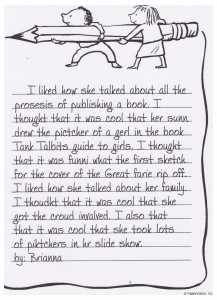 I liked how she talked about all the
prosesis of publishing a book. I
thought that it was cool that her sunn
drew the pictcher of a gerl in the book
Tank Talbits guide to girls. I thought
that it was funni what the first sketch
for the cover of the Great farie rip off.
I liked how she talked about her family.
I thoudht that it was cool that she
got the croud invalved. I also that
that it was cool that she took lots
of piktchers in hr slide show.
by: Brianna